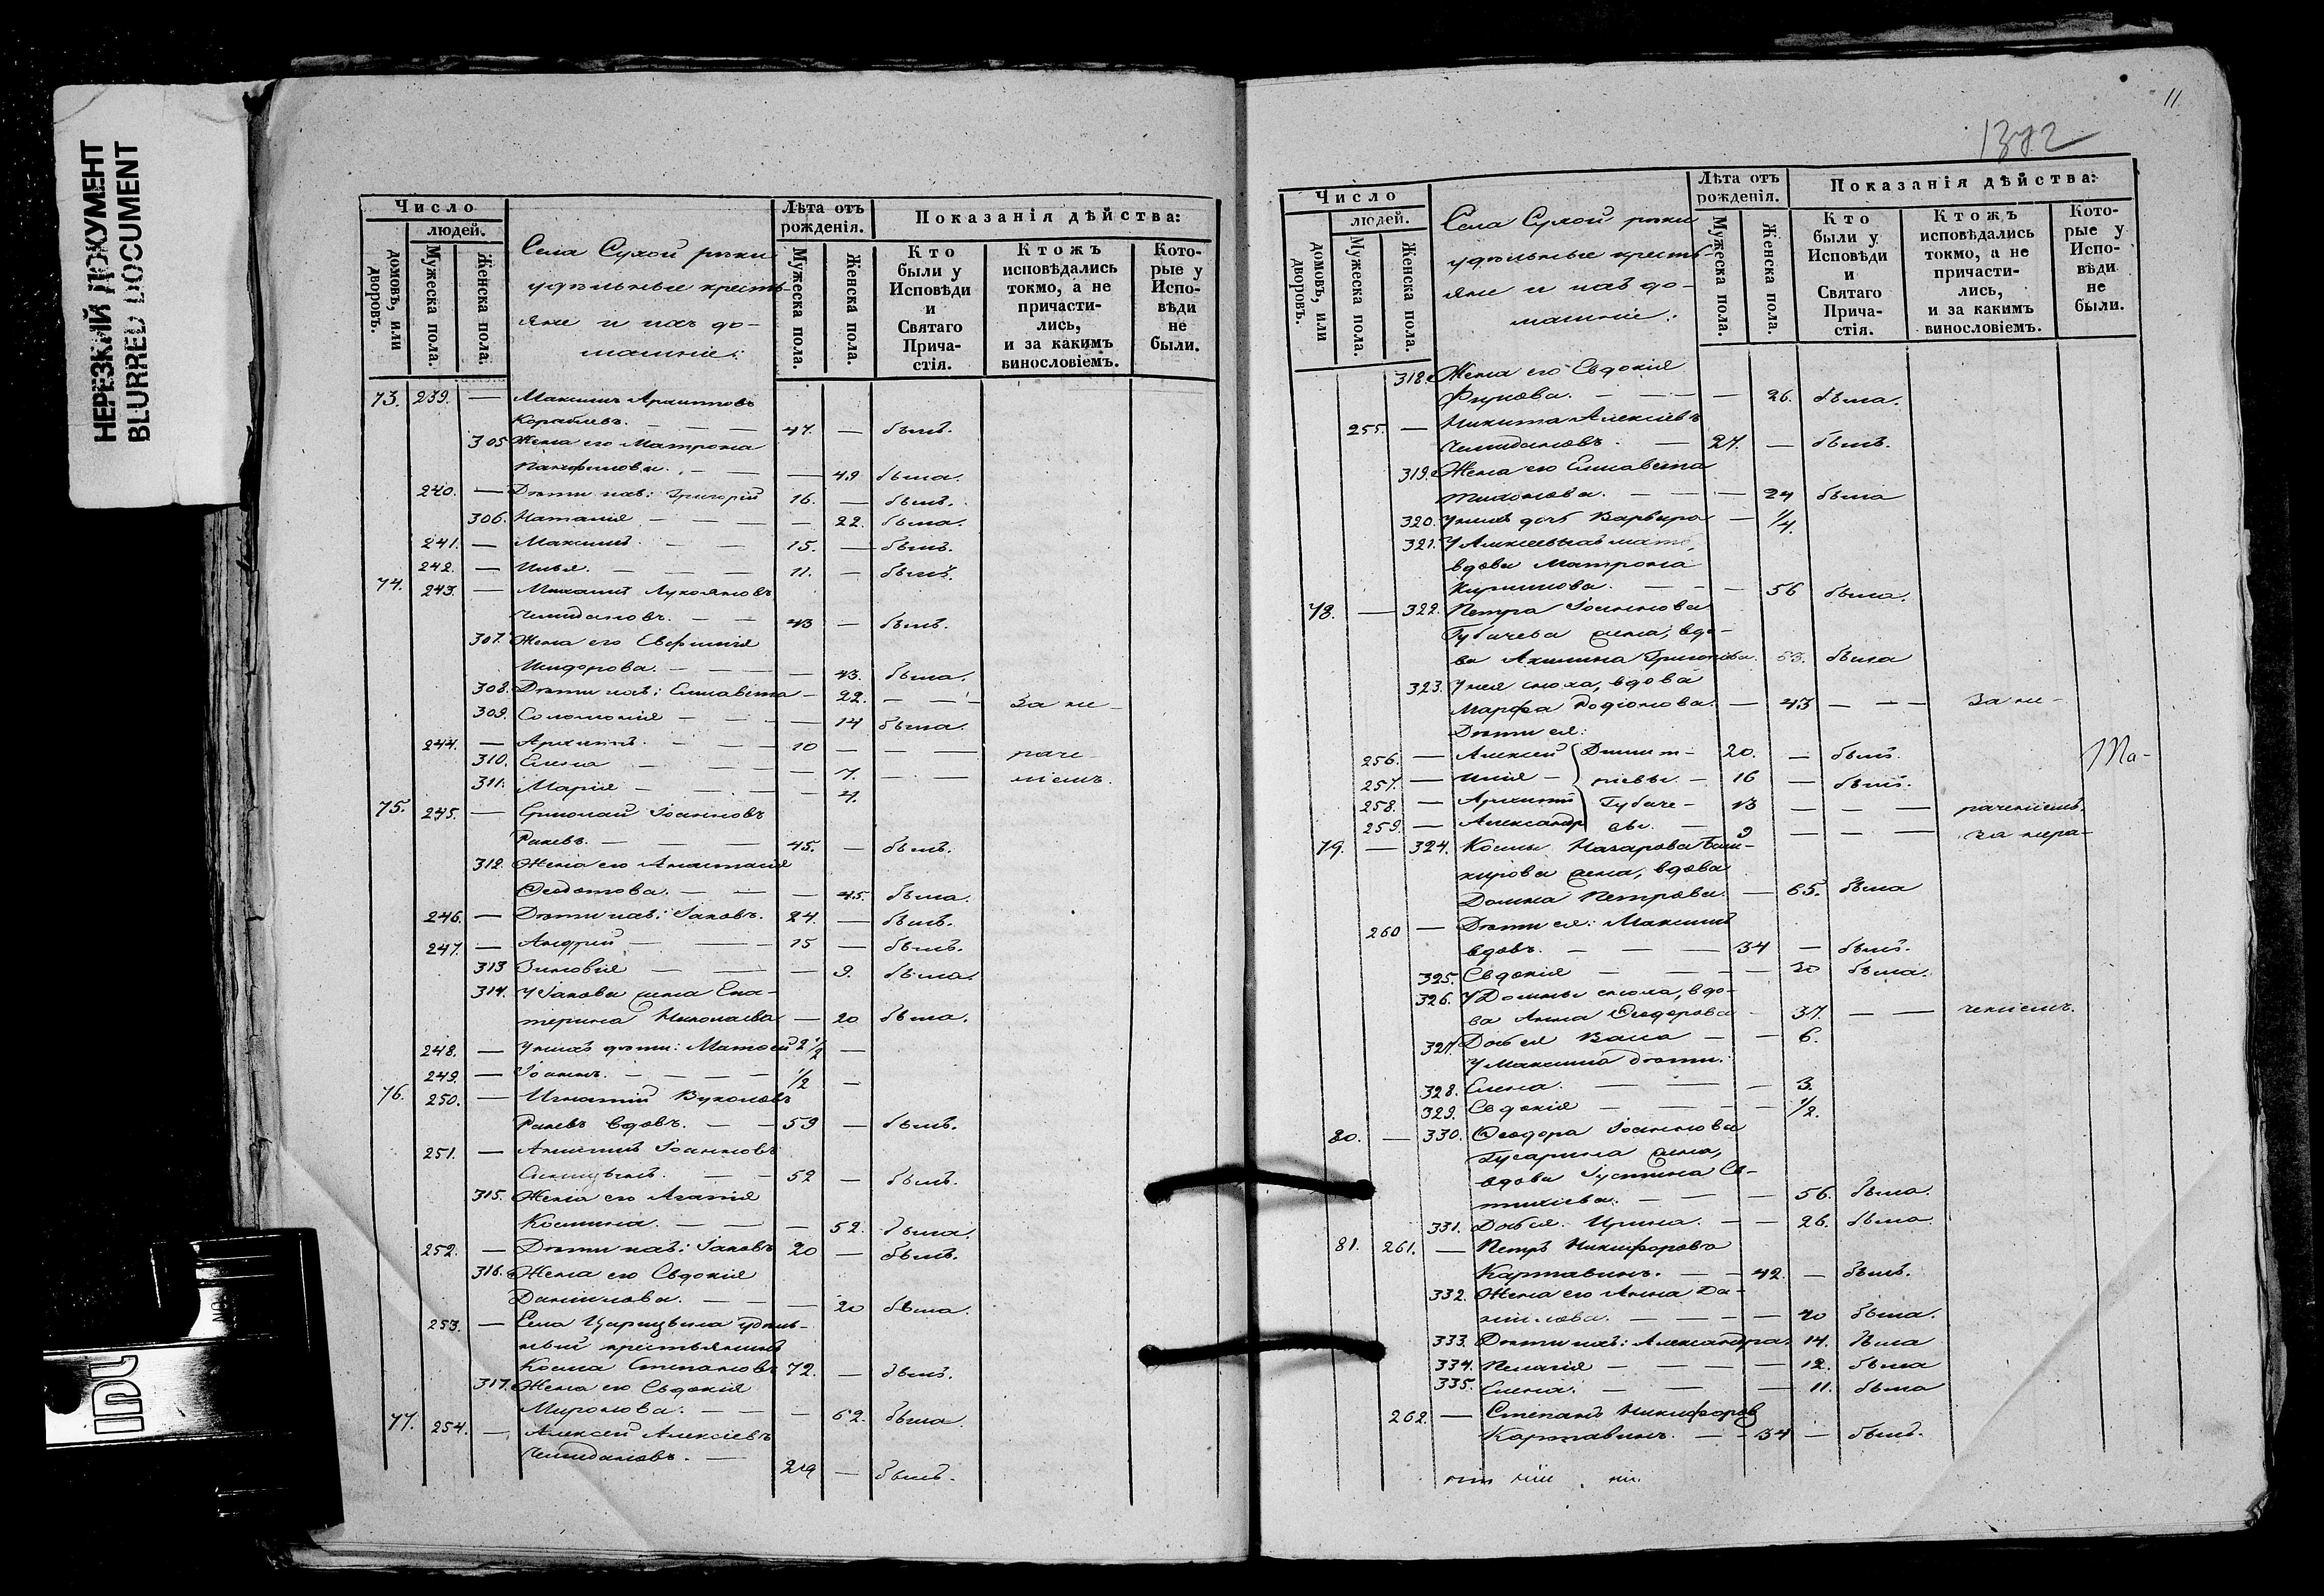 НЕРЕЗКИЙ ДОКУМЕНТ
BLURRED DOCUMENT
Число
людей.
домовъ, или дворовъ.
Мужеска пола.
Женска пола.
Села Сухой рѣки
удѣльные кресть-
яне и ихъ до-
машніе:
Лѣта отъ рожденія.
Мужеска пола
Женска пола.
Показанія дѣйства:
Кто были у Исповѣди и Святаго Прича-стія.
Ктожъ исповѣдались токмо, а не причасти-лись, и за какимъ винословіемъ.
Кото-рые у Испо-вѣди не были.
73. 239. — Максимъ Архиповъ
Кораблевъ. — — — 47. — былъ.
305 Жена его Матрона
Панфилова. — — — 49 была.
240. — Дѣти ихъ: Григорій 16. — былъ.
306. Наталія — — — — 22. была.
241. — Максимъ. — — 15. — былъ.
242. — Илья. — — — 11. — былъ.
74. 243. — Михаилъ Лукояновъ
Чемодановъ. — — 43 — былъ.
307. Жена его Евфимія
Исидорова. — — — 43. была.
308. Дѣти ихъ: Елисавета — 22. — — — За не-
309. Соломонія — — — — 14 была.
244. — Архиппъ. — — 10 — — — раче-
310. Елена — — — — 7. — — ніемъ.
311. Марія — — — — 4.
75. 245. — Ермолай Іоанновъ
Ракевъ. — — — 45. — былъ.
312. Жена его Анастасія
Ѳеодотова. — — — 45. была.
246. — Дѣти ихъ: Іаковъ. 24. — былъ.
247. — Андрей — — — 15 — былъ.
313 Зиновія — — — 9. была.
314. У Іакова жена Ека-
терина Николаева — 20 была.
248. — У нихъ дѣти: Матѳей 2 1/2 —
249. — Іоаннъ. — — — — 1/2 —
76. 250. — Игнатій Вуколовъ
Ракевъ вдовъ. — — 59 — былъ.
251. — Іоанновъ
— — 52 — былъ.
315. Жена его Агапія
Космина. — — — 52. была.
252. — Дѣти ихъ: Іаковъ 20 — былъ.
316. Жена его Евдокія
Данилова. — — — 20 была.
253. — Села Царицына удѣль-
ный крестьянинъ
Косма Степановъ 72. — былъ.
317. Жена его Евдокія
Миронова. — — — 62. была.
77. 254. — Алексей Алексіевъ
Чемодановъ. — 29 — былъ.
11
1372
Число
людей.
домовъ, или дворовъ.
Мужеска пола.
Женска пола.
Села Сухой рѣки
удѣльные кресть-
яне и ихъ до-
машніе:
Лѣта отъ рожденія.
Мужеска пола.
Женска пола.
Показанія дѣйства:
Кто были у Исповѣди и Святаго Прича-стія.
Ктожъ исповѣдались токмо, а не причасти-лись, и за какимъ винословіемъ.
Кото-рые у Испо-вѣди не были.
318. Жена его Евдокія
Фирсова. — — — — 26. была.
255. — Никита Алексіевъ
Чемодановъ. — 27. — былъ.
319. Жена его Елисавета
Тихонова. — — — 24 была
320. У нихъ дочь Варвара — 1/4.
321. У Алексѣевыхъ мать,
вдова Матрона
Кирилова. — — — 56 была.
78. — 322. Петра Іоаннова
Губачева жена, вдо-
ва Акилина Григорьева. 63. была
323. У нея сноха, вдова
Марѳа Родіонова. — 43 — — — За не-
Дѣти ея:
256. — Алексей Димит- 20. — былъ.
257. — Илія — ріевы. — 16 — былъ.
258. — Архиппъ Губаче- 13 — — — раченіемъ
259. — Александръ вы. — 9 — — — За нера-
79. — 324. Космы Назарова Баш-
кирова жена, вдова
Домна Петрова. — 65. была
260 — Дѣти ея: Максимъ
вдовъ. — — — 34 — былъ.
325. Евдокія — — — — 30 была.
326. У Домны сноха, вдо-
ва Анна Ѳеодорова — 37. — — ченіемъ.
327. Дочь ея Васса — — 6.
У Максима дѣти:
328. Елена. — — — 3.
329. Евдокія — — — — 1/2.
80. — 330. Ѳеодора Іоаннова
Гусарина жена,
вдова Іустина Ев-
тихіева. — — — 56. была.
331. Дочь ея Ирина. — — 26. была.
81. 261. — Петръ Никифоровъ
Картавинъ. — — 42. — былъ.
332. Жена его Анна Да-
нилова. — — — — 40 была.
333. Дѣти ихъ: Александра. 14. была
334. Пелагія — — — — 12. была
335. Елена. — — — 11. была
262. — Степанъ Никифоровъ
Картавинъ. — — 34 — былъ.